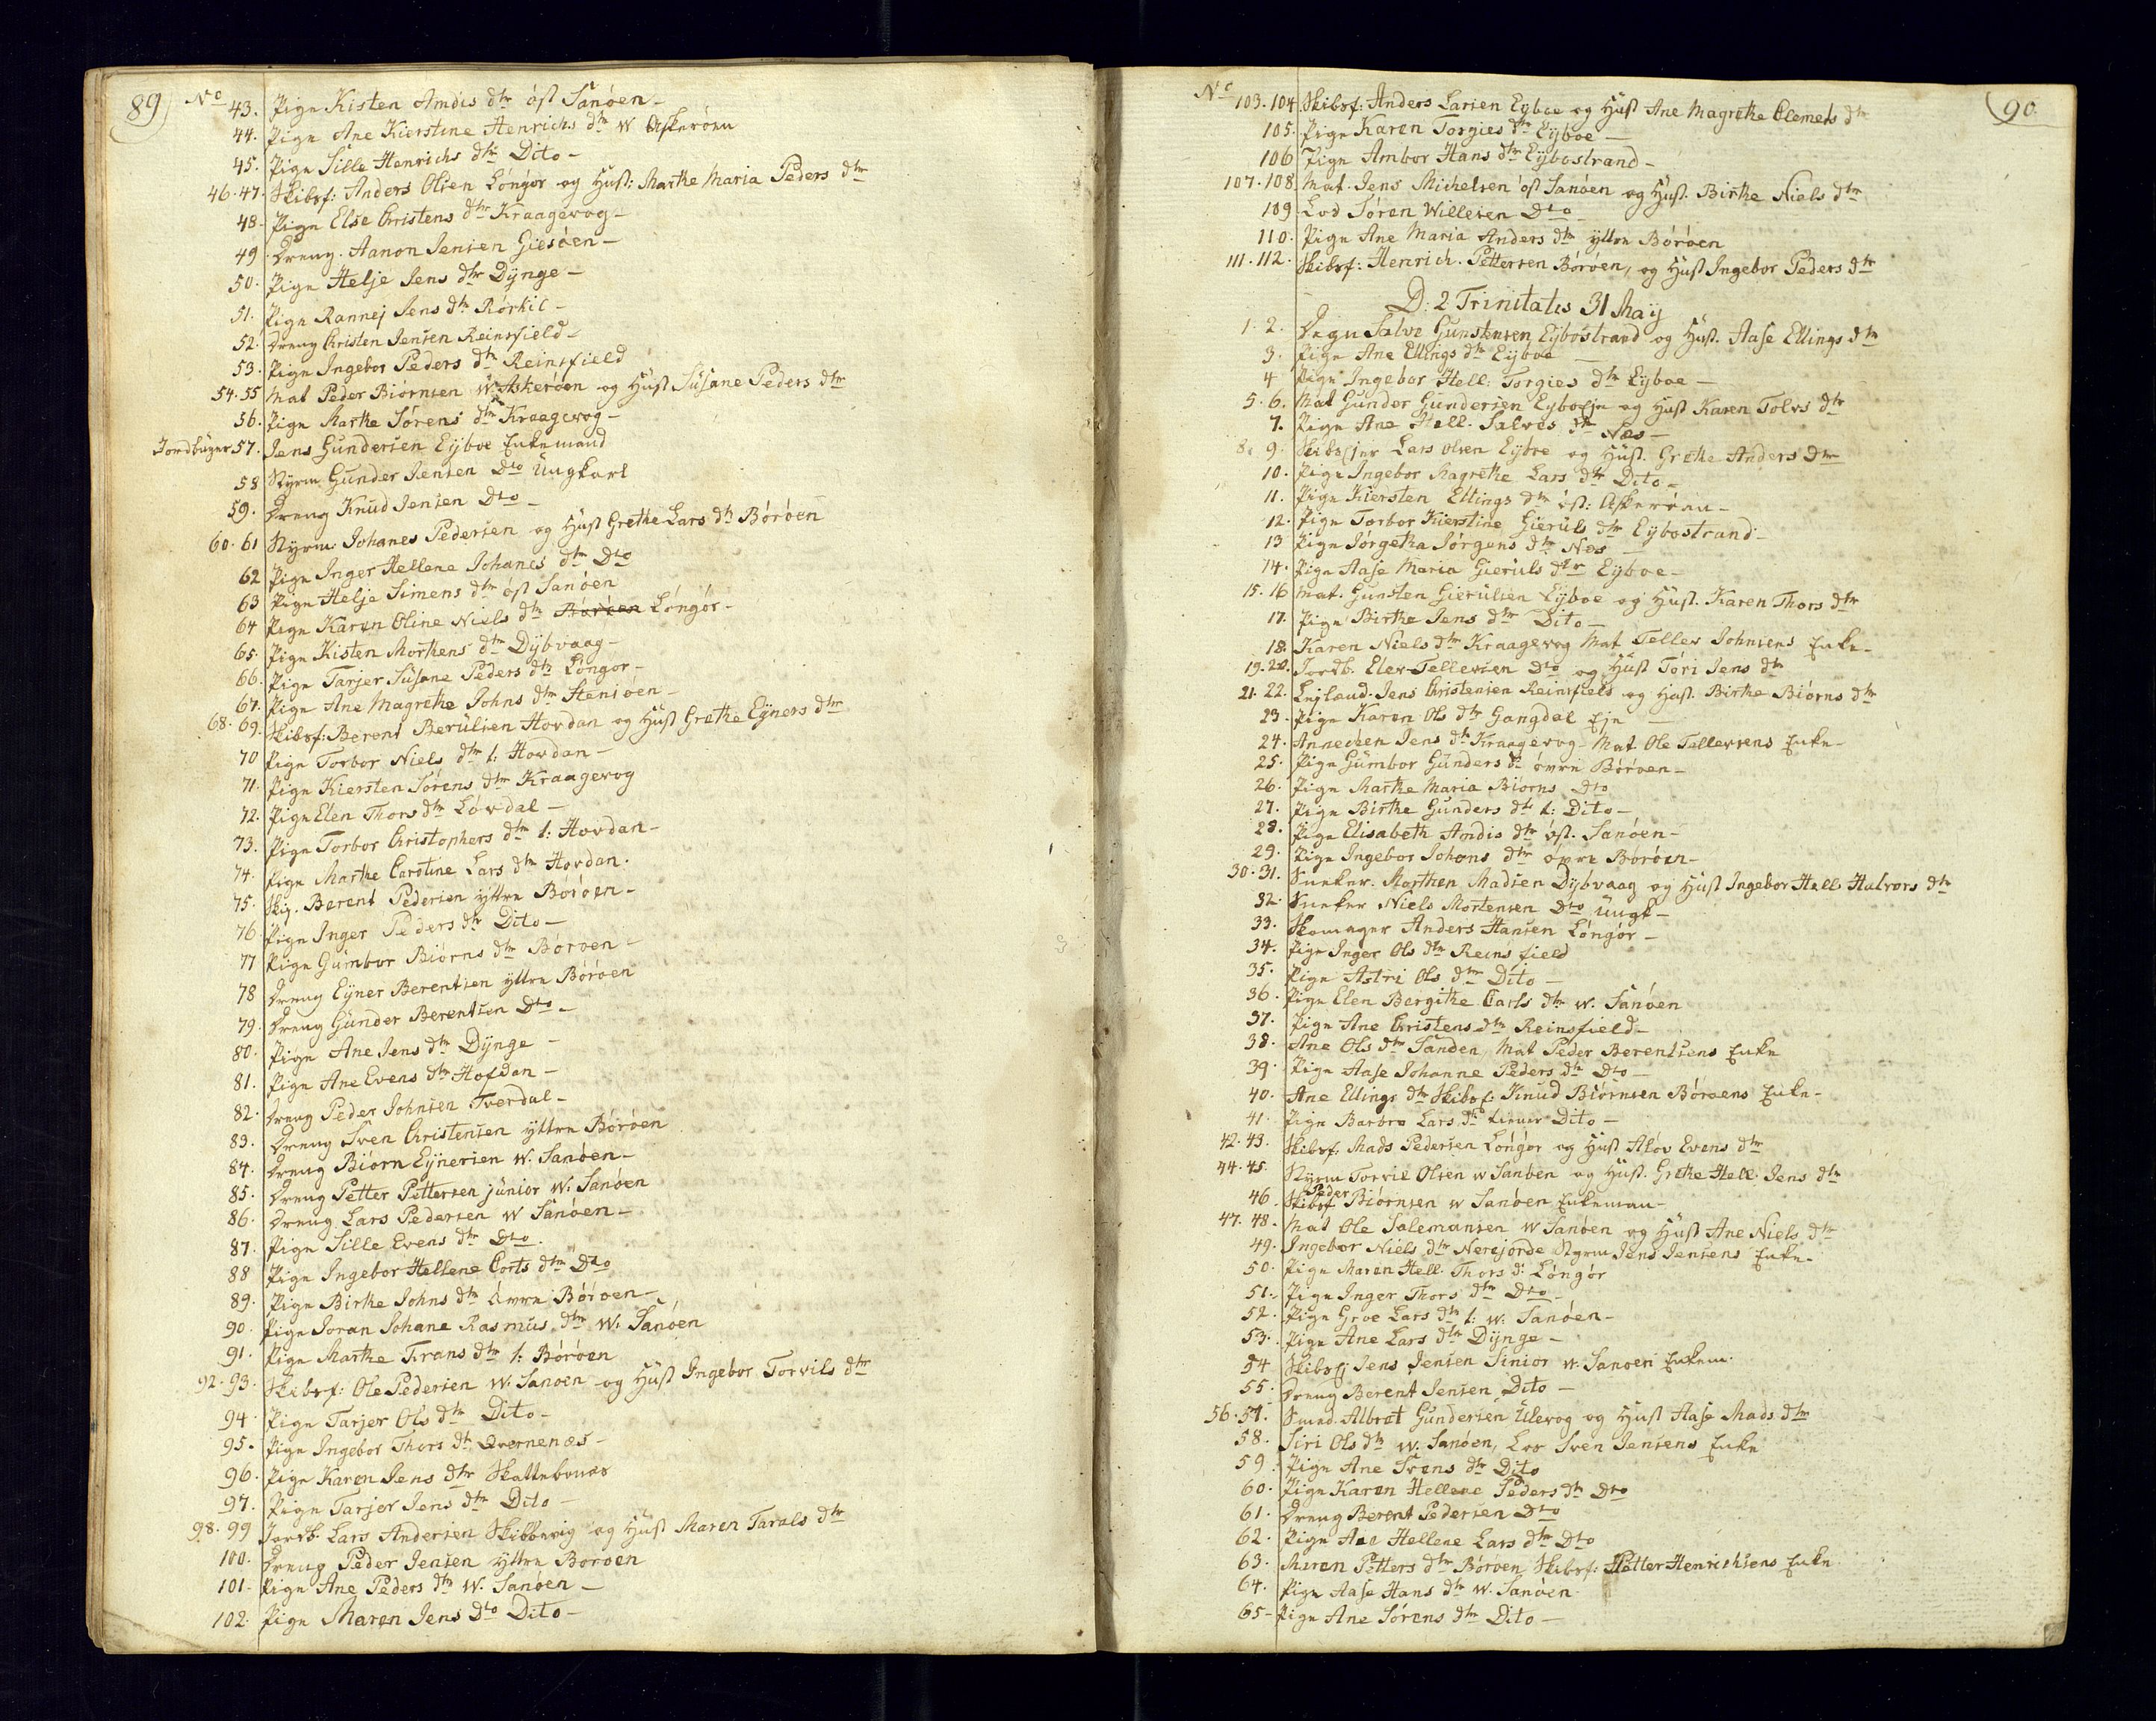 89
No
43. Pige Kisten Amdis dtr öst Sanöen-
44. Pige Ane Kierstine Henrichs dtr W Askeröen
45. Pige Sille Henrichs dtr Dito-
46.47. Skibsf: Anders Olsen Löngör og Hust: Marthe Maria Peders dtr
48. Pige Else Christens dtr Kraagevog-
49. Dreng. Aanon Jensen Giesöen-
50. Pige Helje Jens dtr Dÿnge-
51. Pige Rannej Jens dtr Rörkil-
52. Dreng Christen Jensen Reinsfield-
53. Pige Ingebor Peders dtr Reinsfield
54.55 Mat Peder Biörnsen W. Askeröen og Hust Susane Peders dtr
56. Pige Marthe Sörens dtr Kraagevog-
Jordbuger 57. Jens Gundersen Eÿboe Enkemand
58 Styrm Gunder Jensen Dto Ungkarl
59. Dreng Knud Jensen Dto-
60.61 Styrm: Johanes Pedersen og Hust Grethe Lars dtr Böröen
62 Pige Inger Hellene Johanes dtr Dto
63 Pige Helje Simens dtr öst Sanöen
64 Pige Karen Oline Niels dtr Böröen Löngör-
65. Pige Kisten Morthens dtr Dÿbvaag-
66. Pige Tarjer Susane Peders dtr Löngör-
67. Pige Ane Magrethe Johns dtr Stensöen-
68.69. Skibsf: Berent Berulsen Hovdan og Hust Grethe Eÿners dtr
70 Pige Torbor Niels dtr l: Hovdan-
71. Pige Kiersten Sörens dtr Kraagevog
72. Pige Elen Thors dtr Lövdal-
73. Pige Torbor Christophers dtr l: Hovdan-
74. Pige Marthe Caroline Lars dtr Hovdan.
75. Skip. Berent Pedersen yttre Böröen-
76 Pige Inger Peders dtr Dito-
77 Pige Gumbor Biörns dtr Böröen-
78 Dreng Eÿner Berentsen yttre Böröen
79. Dreng Gunder Berentsen Dto-
80. Pige Ane Jens dtr Dÿnge-
81. Pige Ane Evens dtr Hofdan-
82. Dreng Peder Johnsen Tverdal-
83. Dreng Sven Christensen yttre Böröen
84. Dreng Biörn Eÿnersen W. Sanöen-
85. Dreng Petter Pettersen junior W. Sanöen
86. Dreng Lars Pedersen W Sanöen-
87. Pige Sille Evens dtr Dto.
88 Pige Ingebor Hellene Corts dtr Dto
89. Pige Birthe Johns dtr övre Böröen-
90. Pige Joran Johane Rasmus dtr W. Sanöen
91. Pige Marthe Frans dtr l: Böröen
92.93. Skibsf: Ole Pedersen W. Sanöen og Hust Ingebor Torvils dtr
94. Pige Tarjer Ols dtr Dito-
95. Pige Ingebor Thors dtr Qvernenæs-
96. Pige Karen Jens dtr Skattebonæs
97. Pige Tarjer Jens dtr Dito-
98.99 Jordb. Lars Andersen Skibbevig og Hust Maren Tarals dtr
100. Dreng Peder Jensen yttre Böröen
101. Pige Ane Peders dtr W. Sanöen-
102. Pige Maren Jens Dto Dito-
90
No
103.104 Skibsf: Anders Larsen Eÿboe og Hust Ane Magrethe Clemets dtr
105. Pige Karen Torgies dtr Eÿboe-
106 Pige Ambor Hans dtr Eÿbostrand-
107.108 Mat. Jens Michelsen öst Sanöen og Hust. Birthe Niels dtr
109 Lod Sören Willesen Dto
110. Pige Ane Maria Anders dtr yttre Böröen
111.112. Skibsf: Henrich Pettersen Böröen, og Hust Ingebor Peders dtr
D: 2 Trinitatis 31 Maÿ
1.2. Degn Salve Gunstensen Eÿbostrand og Hust. Aase Ellings dtr
3. Pige Ane Ellings dtr Eÿboe-
4 Pige Ingebor Hell: Torgies dtr Eÿboe-
5.6. Mat Gunder Gundersen Eÿboeje og Hust Karen Tolvs dtr
7. Pige Ane Hell. Salves dtr Næs-
8.9. Skibsejer Lars Olsen Eÿboe og Hust. Grethe Anders dtr
10. Pige Ingebor Magrethe Lars dtr Dito-
11. Pige Kiersten Ellings dtr öst: Askeröen-
12. Pige Torbor Kierstine Gieruls dtr Eÿbostrand-
13 Pige Jörgetha Jörgens dtr Næs-
14. Pige Aase Maria Gieruls dtr Eÿboe-
15.16 Mat. Gunsten Gierulsen Eÿboe og Hust. Karen Thors dtr
17. Pige Birthe Jens dtr Dito-
18. Karen Niels dtr Kraagevog Mat Tellev Johnsens Enke-
19.20. Jordb. Elev Tellevsen Dto og Hust Töri Jens dtr
21.22. Lejland. Jens Christensen Reinsfield og Hust. Birthe Biörns dtr
23. Pige Karen Ols dtr Gangdal Eje-
24. Annechen Jens dtr Kraagevog Mat Ole Tellevsens Enke-
25. Pige Gumbor Gunders dtr övre Böröen-
26. Pige Marthe Maria Biörns Dto
27. Pige Birthe Gunders dtr l: Dito-
28. Pige Elisabeth Amdis dtr öst. Sanöen-
29. Pige Ingebor Johans dtr övre Böröen-
30.31. Sneker. Morthen Madsen Dÿbvaag og Hust Ingebor Hell Halvors dtr
32. Sneker Niels Mortensen Dto Ungk-
33. Skomager Anders Hansen Löngör-
34. Pige Inger Ols dtr Reinsfield
35. Pige Astri Ols dtr Dito-
36. Pige Elen Bergithe Carls dtr W. Sanöen
37. Pige Ane Christens dtr Reinsfield-
38. Ane Ols dtr Sanden, Mat Peder Berentsens Enke
39. Pige Aase Johanne Peders dtr Dto-
40. Ane Ellings dtr Skibsf: Knud Biörnsen Böröens Enke-
41. Pige Barbro Lars dtr Dito-
42.43. Skibsf: Mads Pedersen Löngör og Hust Alöv Evens dtr
44.45. Styrm Torvil Olsen W Sanöen og Hust. Grethe Hell: Jens dtr
46 Skibsf Peder Biörnsen W Sanöen Enkeman-
47.48. Mat Ole Salemansen W Sanöen og Hust Ane Niels dtr
49. Ingebor Niels dtr Nerejorde Styrm Jens Jensens Enke-
50. Pige Maren Hell. Thors dr Löngör
51. Pige Inger Thors dtr Dto-
52. Pige Groe Lars dtr l: W. Sanöen-
53. Pige Ane Lars dtr Dÿnge-
54 Skibsf Jens Jensen Sinior W. Sanöen Enkem.
55. Dreng Berent Jensen Dito-
56.57. Smed. Albret Gundersen Ulevog og Hust Aase Mads dtr
58. Siri Ols dtr W. Sanöen, Los Sven Jensens Enke
59. Pige Ane Svens dtr Dito
60. Pige Karen Hellene Peders dtr Dto
61. Dreng Berent Pedersen Dto
62. Pige Ane Hellene Lars dtr Dto
63. Maren Petters dtr Böröen Skibsf: Petter Henrichsens Enke
64. Pige Aase Hans dtr W. Sanöen
65- Pige Ane Sörens dtr Dito-